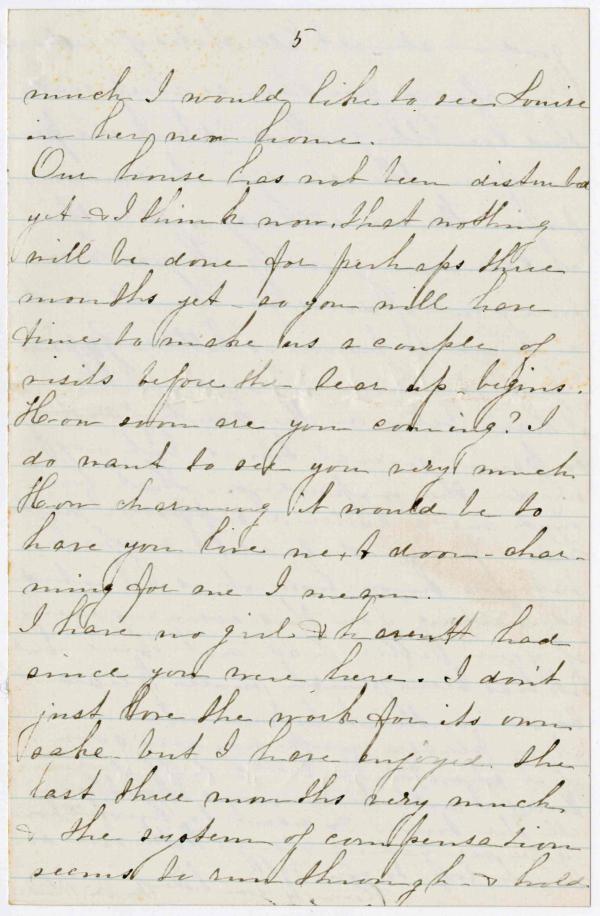 5
much I would like to see Louise
in her new home.
Our house has not been disturbed
yet - & I think now, that nothing
will be done for perhaps three
months yet - so you will have
time to make us a couple of
visits before the tear up - begins.
How soon are you coming? I
do want to see you very much
How charming it would be to
have you live next door - char-
ming for me I mean.
I have no girl & haven't had
since you were here. I don't
just love the work for its own
sake but I have enjoyed the
last three months very much
& the system of compensation
seems to run through - & hold